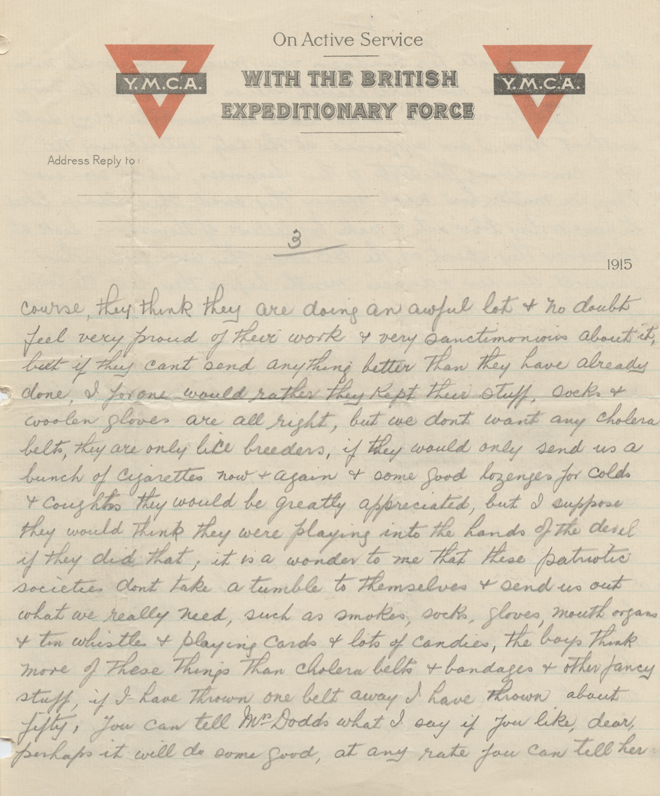 On Active Service
WITH THE BRITISH
EXPEDITIONARY FORCE
Y.M.C.A. Y.M.C.A.
Address Reply to:
3
1915
course, they think they are doing an awful lot & no doubt
feel very proud of their work & very sanctimonious about it,
but if they cant send anything better than they have already
done, I for one would rather they kept their stuff, socks &
woolen gloves are all right, but we dont want any cholera
belts, they are only lice breeders, if they would only send us a
bunch of cigarettes now & again & some good lozenges for colds
& coughs they would be greatly appreciated, but I suppose
they would think they were playing into the hands of the devil
if they did that, it is a wonder to me that these patriotic
societies dont take a tumble to themselves & send us out
what we really need, such as smokes, socks, gloves, mouth organs
& tin whistles & playing cards & lots of candies, the boys think
more of these things than cholera belts & bandages & other fancy
stuff, if I have thrown one belt away I have thrown about
fifty, you can tell Mrs Dodds what I say if you like, dear,
perhaps it will do some good, at any rate you can tell her